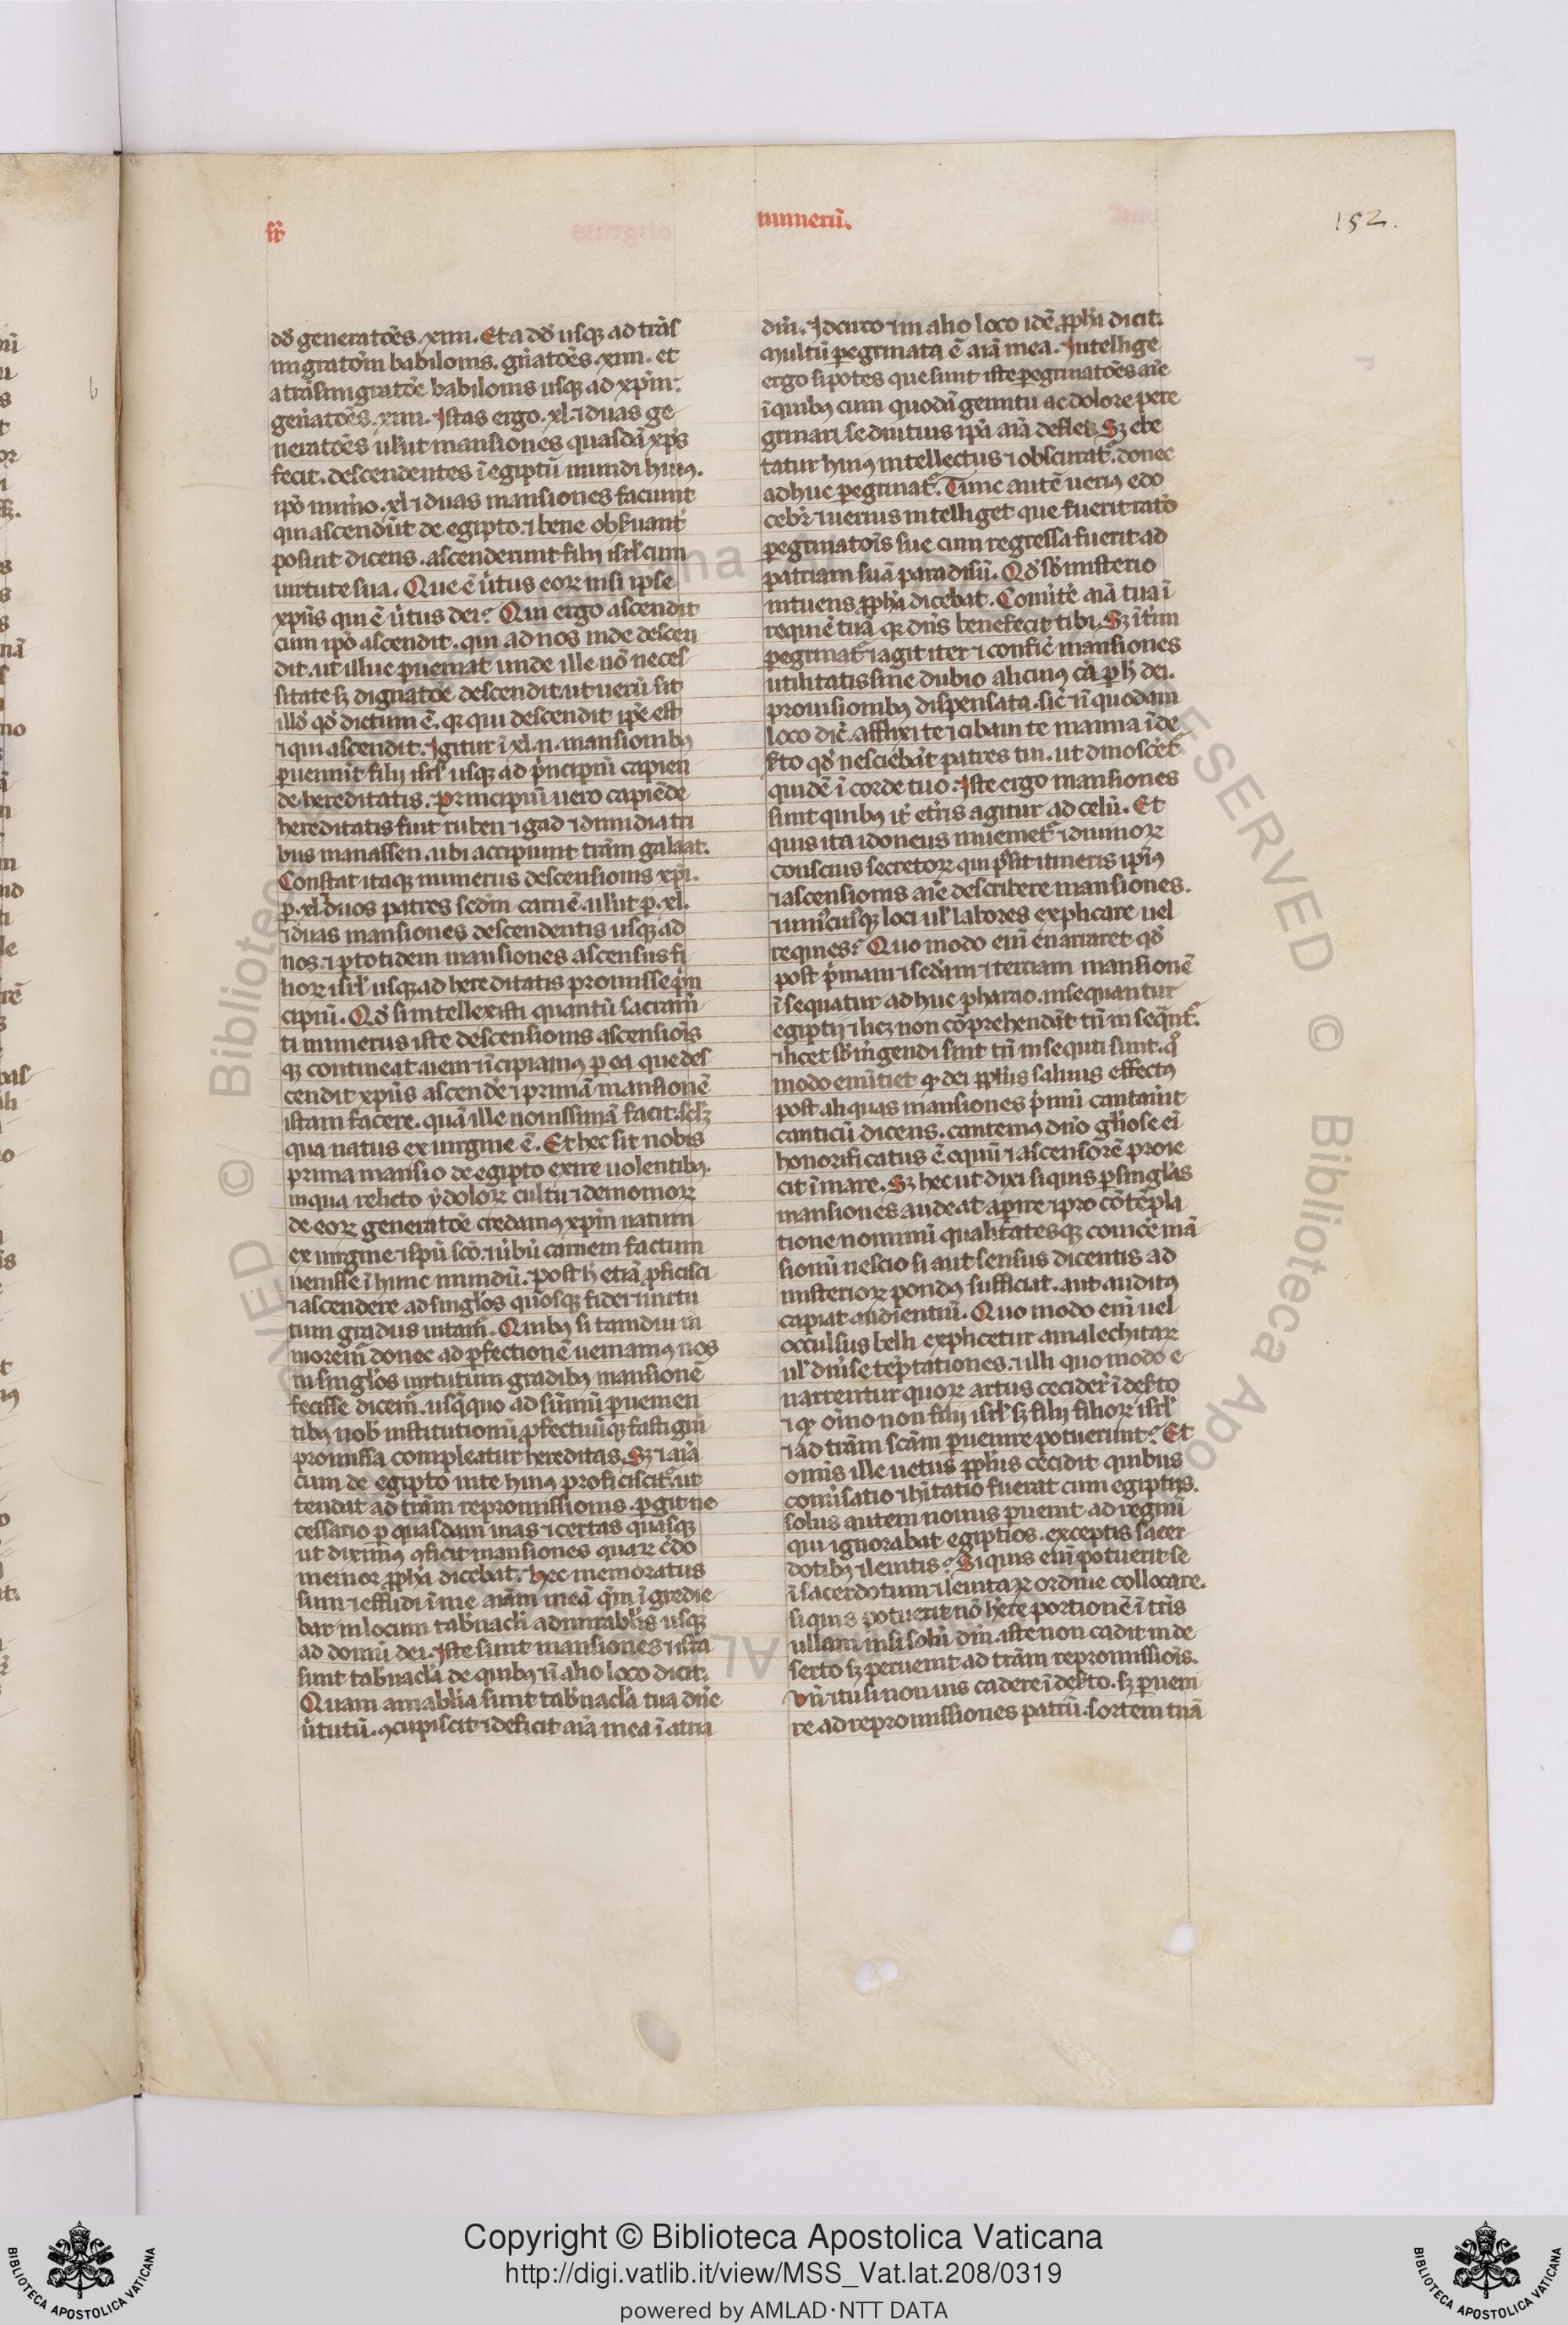 sr̄
numerū.
152.
dđ generatōes .xiiii. Et a dđ usqʒ ad trās
migratōem babilonis. gn̄atōes .xiiii. et
a trāsmigratōe babilonis usqʒ ad xp̄m:
gen̄atōes .xiiii. Istas ergo .xl. ⁊ duas ge
neratōes uelut mansiones quasdā xp̄s
fecit. descendentes ī egiptū mundi huiꝰ.
ip̄o nūmo .xl ⁊ duas mansiones faciunt
qui ascendūt de egipto. ⁊ bene obseruant̄
posuit dicens. ascenderunt filij isrl̄ cum
uirtute sua. Que ē ūtus eoꝝ nisi ipse
xp̄us qui ē ūtus dei? Qui ergo ascendit
cum ip̄o ascendit. qui ad nos inde descen
dit. ut illuc ꝑueniat unde ille nō neces
sitate sʒ dignatōe descendit. ut uerū sit
illđ qđ dictum ē. qꝛ qui descendit ip̄e est
⁊ qui ascendit. Igitur ī xl. ii. mansionibꝰ
ꝑuenīt filij isrl̄ usqʒ ad p̄ncipiū capien
de hereditatis. Principiū uero capiēde
hereditatis fuit ruben ⁊ gad ⁊ dimidia tri
bus manassen. ubi accipiunt trām galaat.
Constat itaqʒ numerus descensionis xp̄i.
ꝑ .xl. duos patres sedm̄ carnē. uelut ꝑ .xl.
⁊ duas mansiones descendentis usqʒ ad
nos. ⁊ ꝑ totidem mansiones ascensus fi
lioꝝ isrl̄ usqʒ ad hereditatis promisse p̄n
cipiū. Qđ si intellexisti quantū sacram̄
ti numerus iste descensionis ascensiōis
qʒ contineat. ueni īcipiamꝰ ꝑ ea que des
cendit xp̄us ascendē ⁊ primā mansionē
istam facere. quā ille nouissimā facit. scilʒ
qua natus ex uirgine ē. Et hec sit nobis
prima mansio de egipto exire uolentibꝰ.
in qua relicto ydoloꝝ cultu ⁊ demonioꝝ
de eoꝝ generatōe credamꝰ xp̄m natum
ex uirgine ⁊ spū scō. ⁊ ūbū carnem factum
uenisse ī hunc mundū. Post h̄ etiā ꝓficisci
⁊ ascendere ad singl̄os quosqʒ fidei ⁊ ūtu
tum gradus nitam̄. Quibꝰ si tamdiu in
morem̄ donec ad ꝑfectionē ueniamꝰ nos
in singl̄os uirtutum gradibꝰ mansionē
fecisse dicem̄. usqꝫquo ad sūmū ꝑuenien
tibꝰ nob̄ institutionū ꝓfectuūqʒ fastigiū
promissa compleatur hereditas. Sʒ ⁊ aīa
cum de egipto uite huiꝰ proficiscit̄. ut
tendat ad trām repromissionis. ꝑgit ne
cessario ꝑ quasdam uias ⁊ certas quasqʒ
ut diximꝰ ꝯficit mansiones quaꝝ c̄do
memor ꝓph̄a dicebat. Hec memoratus
sum ⁊ effudi ī me aīam meā qm̄ īgredie
bar in locum tab̄nacl̄i admirabil̄is usqʒ
ad domū dei. Iste sunt mansiones ⁊ ista
sunt tab̄nacl̄a de quibꝰ ⁊ ī alio loco dicit.
Quam amabil̄ia sunt tab̄nacl̄a tua dn̄e
ūtutū. ꝯcupiscit ⁊ deficit aīa mea ī atria
dn̄i. Idcirco ⁊ in alio loco idē ꝓph̄a dicit.
Multū ꝑegrinata ē aīa mea. Intellige
ergo si potes que sunt iste ꝑegrinatōes aīe
ī quibꝰ cum quodā gemitu ac dolore pere
grinari se diutius ip̄a aīa deflet. Sʒ ebe
tatur huiꝰ intellectus ⁊ obscurat̄. donec
adhuc ꝑegrinat̄. Tunc autē ueriꝰ edo
cebr̄ ⁊ uerius intelliget que fuerit ratō
ꝑegrinatōis sue cum regressa fuerit ad
patriam suā paradisū. Qđ sb̄ misterio
intuens ꝓph̄a dicebat. Conūt̄e aīa tua ī
requiē tuā qꝛ dn̄s benefecit tibi. Sʒ īt̄im
ꝑegrinat̄ ⁊ agit iter ⁊ confic̄ mansiones
utilitatis sine dubio alicuiꝰ cā ꝑ h̄ dei.
prouisionibꝰ dispensata. sic̄ ⁊ ī quodam
loco dic̄. afflixi te ⁊ cibaui te manna ī de
s̄to qđ nesciebāt patres tui. ut dinoscēt̄
quidē ī corde tuo. Iste ergo mansiones
sunt quibꝰ it̄ et̄ris agitur ad celū. Et
quis ita idoneus inueniet̄ ⁊ diuinoꝝ
conscius secretoꝝ qui possit itineris ip̄iꝰ
⁊ ascensionis aīe describere mansiones.
⁊ uniꝰcuiꝰqʒ loci uel labores explicare uel
requies? Quo modo eni enarraret qđ
post p̄mam ⁊ sedam ⁊ terciam mansionē
īsequatur adhuc pharao. insequantur
egiptij ⁊ licʒ non cōprehendāt tn̄ inseqūt̄.
⁊ licet sb̄m̄gendi sint tn̄ insequti sunt. qͦ
modo enūtiet qꝛ dei ꝓpl̄us saluus effectꝰ
post aliquas mansiones p̄mū cantauit
canticū dicens. cantemꝰ dn̄o gl̄iose eī
honorificatus ē equū ⁊ ascensorē proie
cit ī mare. Sʒ hec ut dixi si quis ꝑ singl̄as
mansiones audeat aperire ⁊ pro cōtēpla
tione nominū qualitatesqʒ coniicē mā
sionū nescio si aut sensus dicentis ad
misterioꝝ pondꝰ sufficiat. aut auditꝰ
capiat audientiū. Quo modo eni uel
occursus belli explicetur amalechitaꝝ
uel diūse teptationes. ⁊ illi quomodo e
narrentur quoꝝ artus cecider̄ ī des̄to
⁊ qꝛ oīno non filij isrl̄ sʒ filij filioꝝ isrl̄
⁊ ad trām scām ꝑuenire potuerunt? Et
omīs ille uetus ꝓpl̄us cecidit quibus
conūsatio ⁊ hītatio fuerat cum egiptijs.
solus autem nouus ꝑuenit ad regnū
qui ignorabat egiptios. exceptis sacer
dotibꝰ ⁊ leuitis? Si quis eni potuerit se
ī sacerdotum ⁊ leuitaꝝ ordine collocare.
si quis potuerit nō h̄ere portionē ī tr̄is
ullam nisi solū dn̄m. iste non cadit in de
serto sʒ peruenit ad trām repromissiōis.
Vn̄ ⁊ tu si non uis cadere ī des̄to. sʒ ꝑueni
re ad repromissiones patrū. sortem tuā
© Biblioteca Apostolica Vaticana
Copyright © Biblioteca Apostolica Vaticana
http://digi.vatlib.it/view/MSS_Vat.lat.208/0319
powered by AMLAD·NTT DATA
BIBLIOTECA APOSTOLICA VATICANA
BIBLIOTECA APOSTOLICA VATICANA